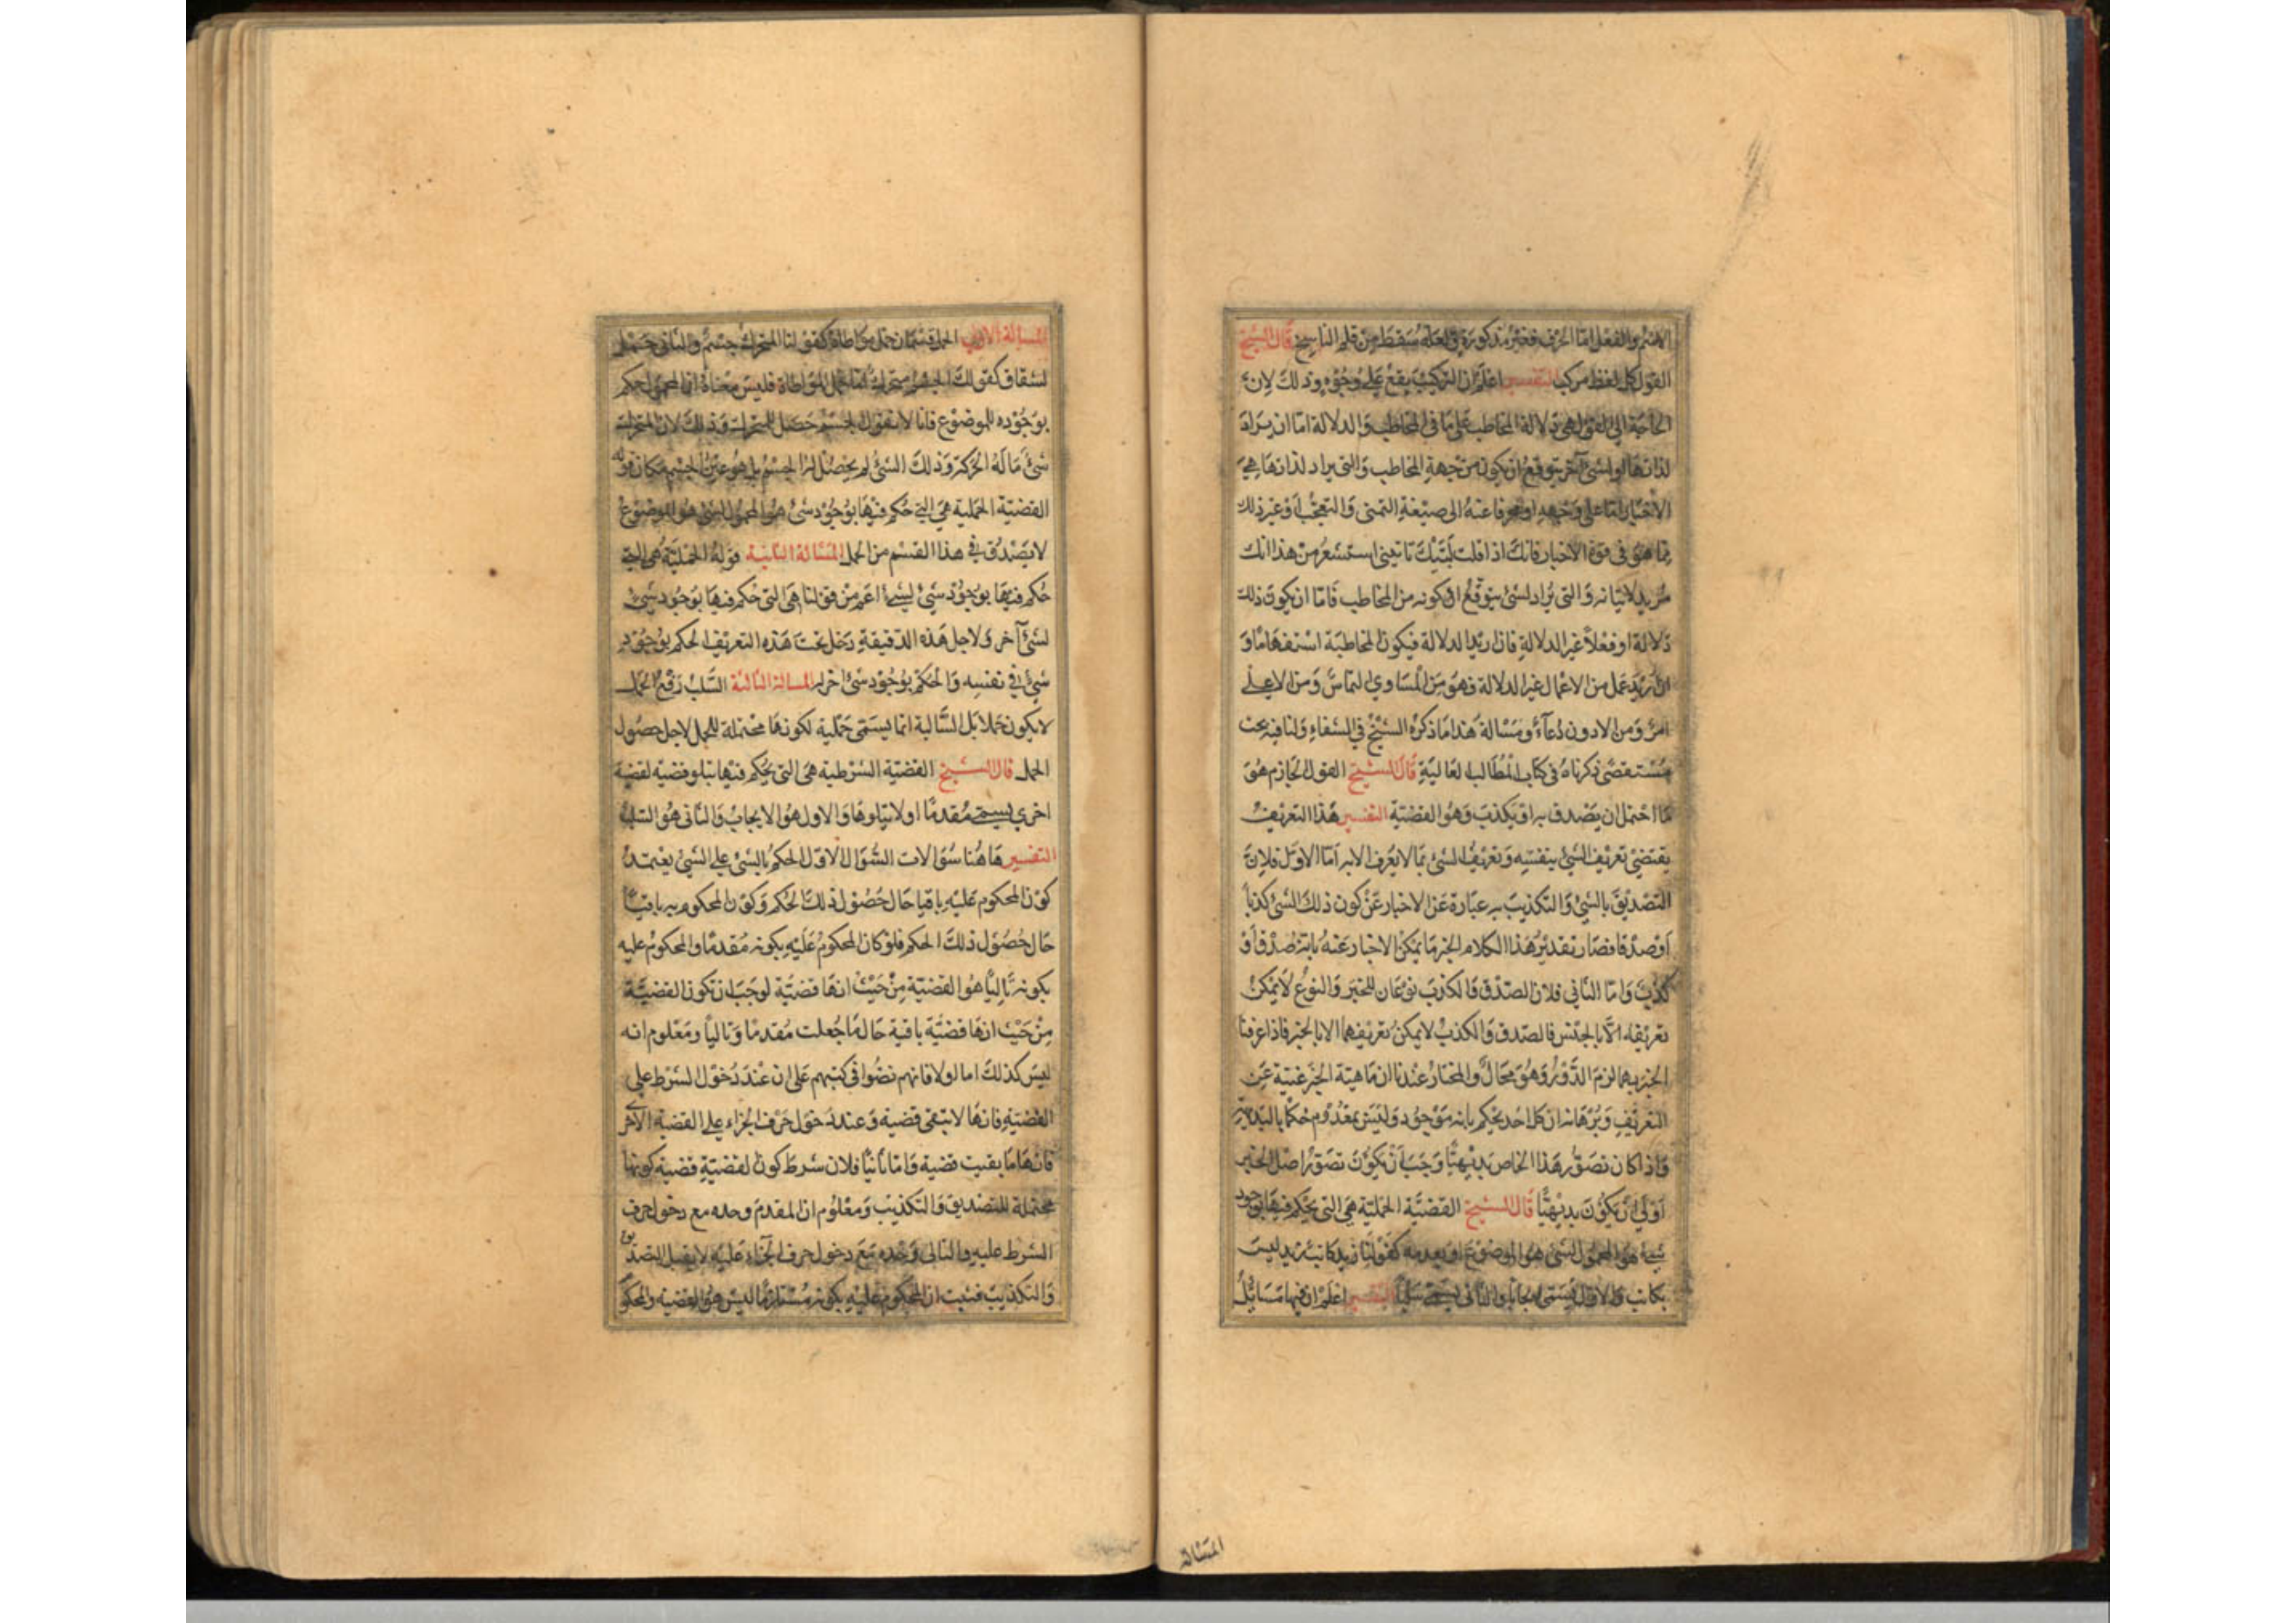 الاسم والفعل اما الحرف فغير مذكورة ولعله سقط من قلم الناسخ قال الشيخ
القول كل لفظ مركب التفسير اعلم ان التركيب يقع على وجوه وذلك لان
الحاجة الى القول هى دلالة المخاطب على ما فى المخاطب والدلالة اما ان يراد
لذاتها او لشئ آخر يتوقع ان يكون من جهة المخاطب والتى يراد لذاتها هى
الاخبار اما على وجهه او محرفا عنه الى صيغة التمنى والتعجب او غير ذلك
مما هو فى قوة الاخبار فانك اذا قلت ليتك تاتينى استشعر من هذا انك
مريد لاتيانه والتى يراد لشئ يتوقع ان كونه من المخاطب فاما ان يكون ذلك
دلالة او فعلا غير الدلالة فان اريد الدلالة فيكون المخاطبة استفهاما و
ان اريد عمل من الاعمال غير الدلالة فهو من المساوي التماس ومن الاعلى
امر ومن الادون دعاء ومسالة هذا ما ذكره الشيخ في الشفاء ولنا فيه بحث
مستقصى ذكرناه فى كتاب المطالب العالية قال الشيخ القول الجازم هو
ما احتمل ان يصدق به او يكذب وهو القضية التفسير هذا التعريف
يقتضى تعريف الشئ بنفسه وتعريف الشئ بما لا يعرف الا به اما الاول فلان
التصديق بالشئ والتكذيب به عبارة عن الاخبار عن كون ذلك الشئ كذبا
او صدقا فصار تقدير هذا الكلام الخبر ما يمكن الاخبار عنه بانه صدق او
كذب واما الثانى فلان الصدق والكذب نوعان للخبر والنوع لا يمكن
تعريفه الا بالجنس فالصدق والكذب لا يمكن تعريفهما الا بالخبر فاذا عرفنا
الخبر بهما لزم الدور وهو محال والمختار عندنا ان ماهية الخبر غنية عن
التعريف وبرهانه ان كل احد يحكم بانه موجود وليس بمعدوم حكما بالبديهة
واذا كان تصور هذا الخاص بديهيا وجب ان يكون تصور اصل الخبر
اولى ان يكون بديهيا قال الشيخ القضية الحملية هى التى يحكم فيها بوجود
شئ هو المحمول لشئ هو الموضوع او بعدمه كقولنا زيد كاتب زيد ليس
بكاتب والاول يسمى ايجابا والثانى يسمى سلبا التفسير اعلم ان فيها مسائل
المسالة
المسالة الاولى الحمل قسمان حمل مواطاة كقولنا المتحرك جسم والثانى حمل
اشتقاق كقولك الجسم متحرك اما حمل المواطاة فليس معناه ان المحمول حكم
بوجوده للموضوع فانا لا نقول الجسم حصل للمتحرك وذلك لان المتحرك
شئ ما له الحركة وذلك الشئ لم يحصل له الجسم بل هو عين الجسم فكان قوله
القضية الحملية هى التى حكم فيها بوجود شئ هو المحمول لشئ هو الموضوع
لا يصدق فى هذا القسم من الحمل المسالة الثانية قوله الحملية هى التى
حكم فيها بوجود شئ لشئ اعم من قولنا هى التى حكم فيها بوجود شئ
لشئ آخر ولاجل هذه الدقيقة دخل تحت هذه التعريف الحكم بوجود
شئ فى نفسه والحكم بوجود شئ اخر له المسالة الثالثة السلب رفع الحمل
لا يكون حملا بل السالبة انما يسمى حملية لكونها محتملة للحمل لاجل حصول
الحمل قال الشيخ القضية الشرطية هى التى يحكم فيها بتلو قضية لقضية
اخرى يسمى مقدما اولا تتلوها والاول هو الايجاب والثانى هو السلب
التفسير هاهنا سؤالات السؤال الاول الحكم بالشئ على الشئ يعتمد
كون المحكوم عليه باقيا حال حصول ذلك الحكم وكون المحكوم به باقيا
حال حصول ذلك الحكم فلو كان المحكوم عليه بكونه مقدما والمحكوم عليه
بكونه تاليا هو القضية من حيث انها قضية لوجب ان تكون القضية
من حيث انها قضية باقية حال ما جعلت مقدما وتاليا ومعلوم انه
ليس كذلك اما اولا فانهم نصوا فى كتبهم على ان عند دخول الشرط على
القضية فانها لا تبقى قضية وعند دخول حرف الجزاء على القضية الاخرى
فانها ما بقيت قضية واما ثانيا فلان شرط كون القضية قضية كونها
محتملة للتصديق والتكذيب ومعلوم ان المقدم وحده مع دخول حرف
الشرط عليه والتالى وحده مع دخول حرف الجزاء عليه لا يقبل التصديق
والتكذيب فثبت ان المحكوم عليه بكونه مستلزما ليس هو القضية والمحكوم